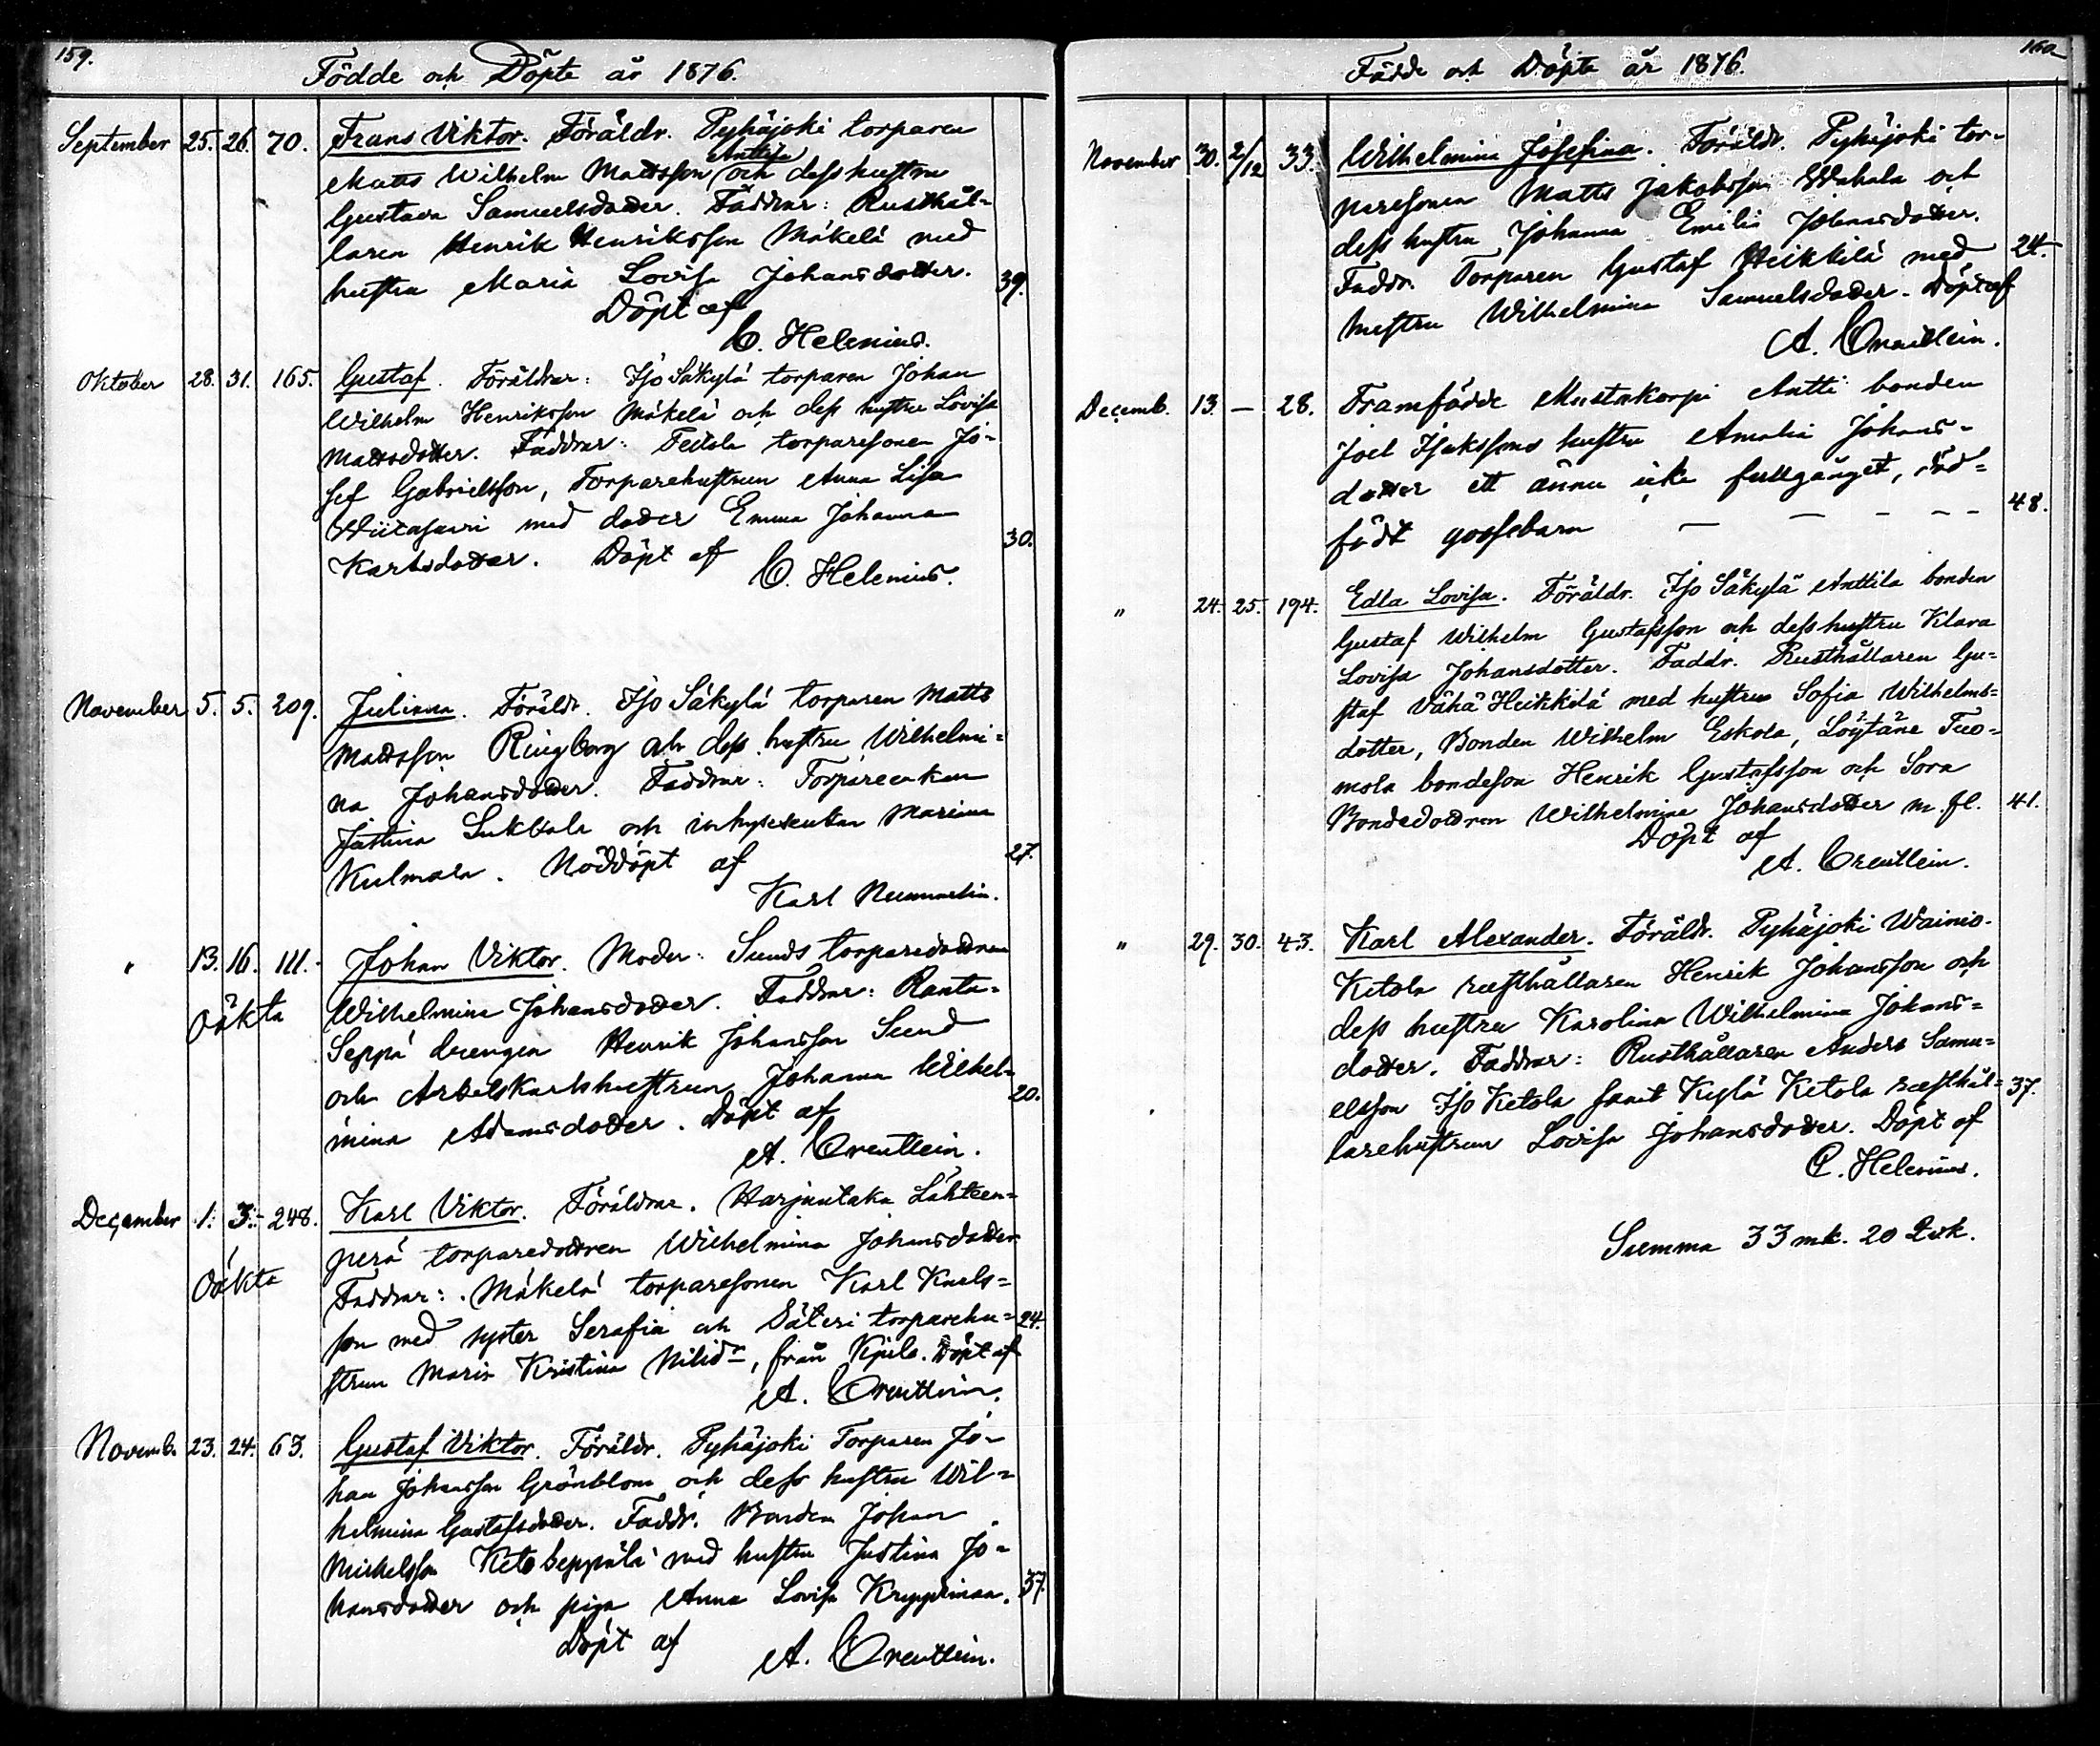 159.
Födde och Döpte år 1876.
September 25. 26. 70. Frans Viktor. Föräldr. Pyhäjoki torparen
Matts Wilhelm Mattsson Anttila och dess hustru
Gustava Samuelsdotter. Faddrar: Rusthål-
laren Henrik Henriksson Mäkelä med
hustru Maria Lovisa Johansdotter. 39.
Döpt af
C. Helenius.
Oktober 28. 31. 165. Gustaf. Föräldrar: Iso Säkylä torparen Johan
Wilhelm Henriksson Mäkelä och dess hustru Lovisa
Mattsdotter. Faddrar: torparesonen Jo-
sef Gabrielsson, Torparehustrun Anna Lisa
med dotter Emma Johanna
Karlsdotter. Döpt af 30.
C. Helenius.
November 5. 5. 209. Juliana. Föräldr. Iso Säkylä torparen Matts
Mattsson Ringborg och dess hustru Wilhelmi-
na Johansdotter. Faddrar: Torpareenkan
Justina och inhysesenkan Mariana
Kulmala. Nöddöpt af 27.
Karl Nummelin.
" 13. 16. 111. Johan Viktor. Moder: Sunds torparedottren
Oäkta Wilhelmina Johansdotter. Faddrar: Ranta-
Seppä drengen Henrik Johansson Sund
och Arbetskarlshustrun Johanna Wilhel- 20.
mina Adamsdotter. Döpt af
A. Oreullein.
December 1. 3. 248. Karl Viktor. Föräldrar. Harjuntaka Lähteen-
perä torparedottren Wilhelmina Johansdotter
Oäkta Faddrar: Mäkelä torparesonen Karl Karls-
son med syster Serafia och Säteri torparehu- 24.
strun Maria Kristina, från Kjulo. Döpt af
A. Oreullein.
Novemb. 23. 24. 63. Gustaf Viktor. Föräldr. Pyhäjoki Torparen Jo-
han Johansson Grönblom och dess hustru Wil-
helmina Gustafsdotter. Faddr. Bonden Johan
Michelsson Keto Seppälä med hustru Justina Jo-
hansdotter och piga Anna Lovisa. 37.
Döpt af A. Oreullein.
160
Födde och Döpte år 1876.
November 30. 2/12 33. Wilhelmina Josefina. Föräldr. Pyhäjoki tor-
paresonen Matts Jakobsson Wahala och
dess hustru Johanna Emilia Johansdotter.
Faddr. Torparen Gustaf Heikkilä med 24.
hustru Wilhelmina Samuelsdotter. Döpt af
A. Oreullein.
Decemb. 13. — 28. Framfödde Mustakorpi Antti bonden
Joel Isakssons hustru Amalia Johans-
dotter ett ännu icke fullgånget, död-
födt gossebarn — — - - - 48.
" 24. 25. 194. Edla Lovisa. Föräldr. Iso Säkylä Anttila bonden
Gustaf Wilhelm Gustafsson och dess hustru Klara
Lovisa Johansdotter. Faddr. Rusthållaren Gu-
staf Vähä Heikkilä med hustru Sofia Wilhelms-
dotter, Bonden Wilhelm Eskola, Löytäne Tuo-
mola bondeson Henrik Gustafsson och Sora
Bondedottren Wilhelmina Johansdotter m. fl. 41.
Döpt af
A. Oreullein.
" 29. 30. 43. Karl Alexander. Föräldr. Pyhäjoki Wainio-
Ketola rusthållaren Henrik Johansson och
dess hustru Karolina Wilhelmina Johans-
dotter. Faddrar: Rusthållaren Anders Samu-
elsson Iso Ketola samt Kylä Ketola rusthål- 37.
larehustrun Lovisa Johansdotter. Döpt af
C. Helenius.
Summa 33 mk. 20 P:k.